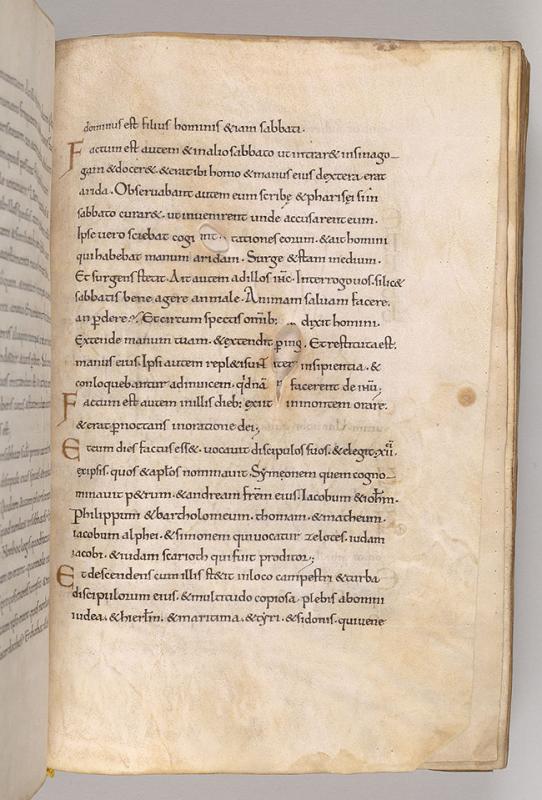 dominus est filius hominis & iam sabbati.
Factum est autem & in alio sabbato ut intrar& in sinago
gam & docer&. & erat ibi homo & manus eius dextera erat
arida. Observabant autem eum scribę & pharisęi si in
sabbato curar&. ut invenirent unde accusarent eum.
Ipse vero sciebat cogitationes eorum. & ait homini
qui habebat manum aridam. Surge & sta in medium.
Et surgens stetit. Ait autem ad illos ihc. Interrogo vos. si lic&
sabbatis bene agere an male. Animam salvam facere.
an pdere. Et circum spectis omib: dixit homini.
Extende manum tuam. & extendit. Et restituta est
manus eius. Ipsi autem repl&i sunt insipientia. &
conloquebantur ad invicem. qdnā facerent de ihu;
Factum est autem in illis dieb: exiit in montem orare.
& erat pernoctans in oratione dei;
Et cum dies factus ess&. vocavit discipulos suos. & elegit. xii
ex ipsis. quos & aplos nominavit. Symeonem quem cogno
minavit p&rum. & andream frēm eius. Iacobum & iohm.
Philippum & bartholomeum. thomam. & matheum.
iacobum alphei. & simonem qui vocatur zelotes. iudam
iacobi. & iudam scarioth qui fuit proditor;
Et descendens cum illis st&it in loco campestri & turba
discipulorum eius. & multitudo copiosa plebis ab omni
iudea. & hierlm. & maritima. & tyri. & sidonis. qui vene